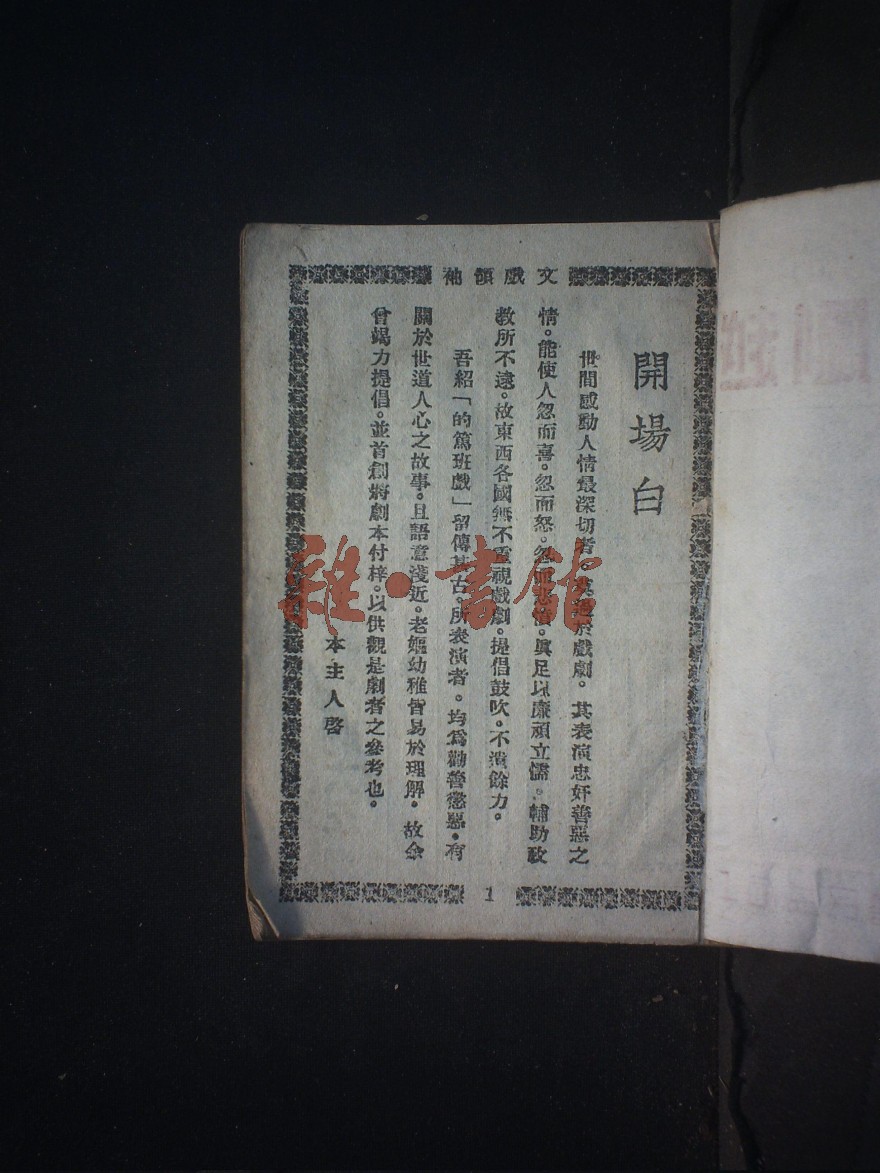 文戲領袖
開場白
世間感動人情最深切者。莫過於戲劇。其表演忠奸善惡之
情。能使人忽而喜。忽而怒。忽而悲。眞足以廉頑立懦。輔助政
教所不逮。故東西各國無不重視戲劇。提倡鼓吹。不遺餘力。
吾紹「的篤班戲」留傳甚古。所表演者。均爲勸善懲惡。有
關於世道人心之故事。且語意淺近。老嫗幼稚皆易於理解。故余
曾竭力提倡。並首創將劇本付梓。以供觀是劇者之參考也。
本主人啓
1
雜·書館